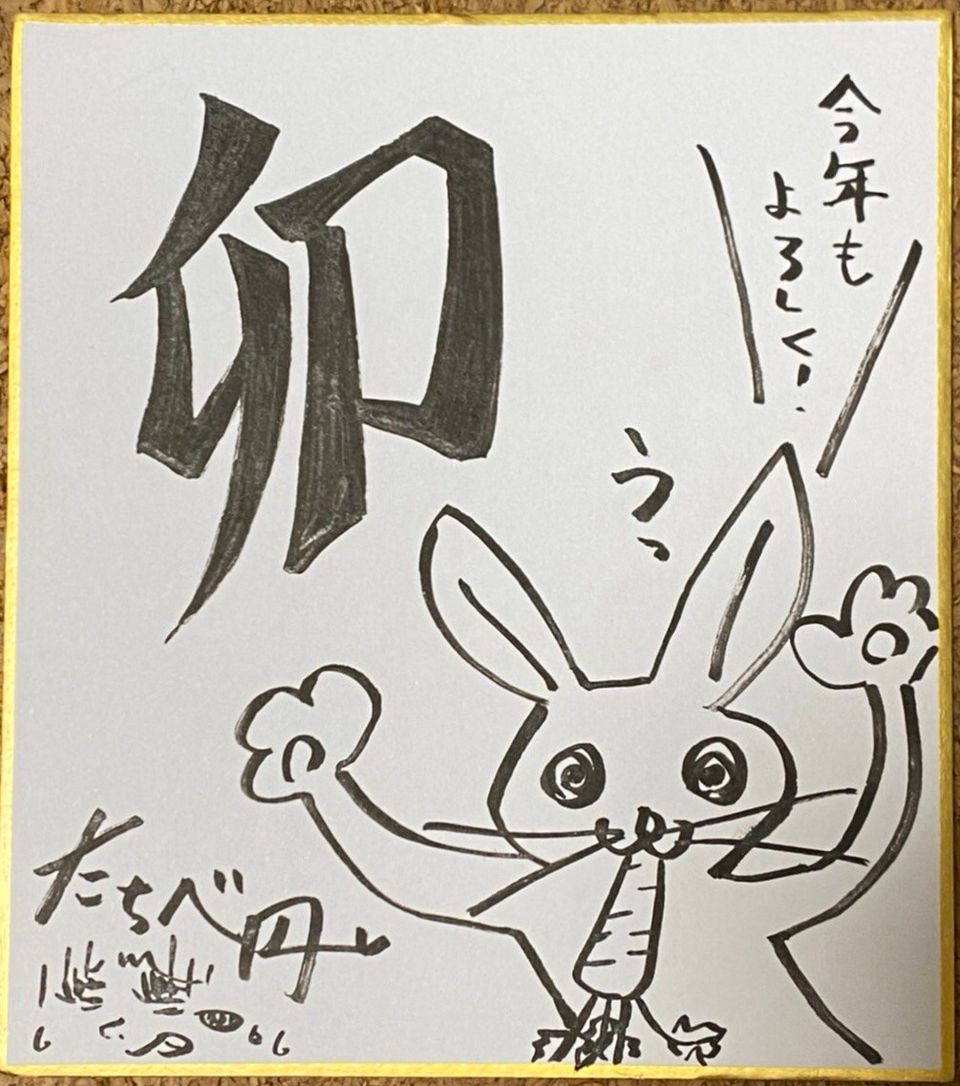 今年も
よろしく!
卯
うっ
たちべ